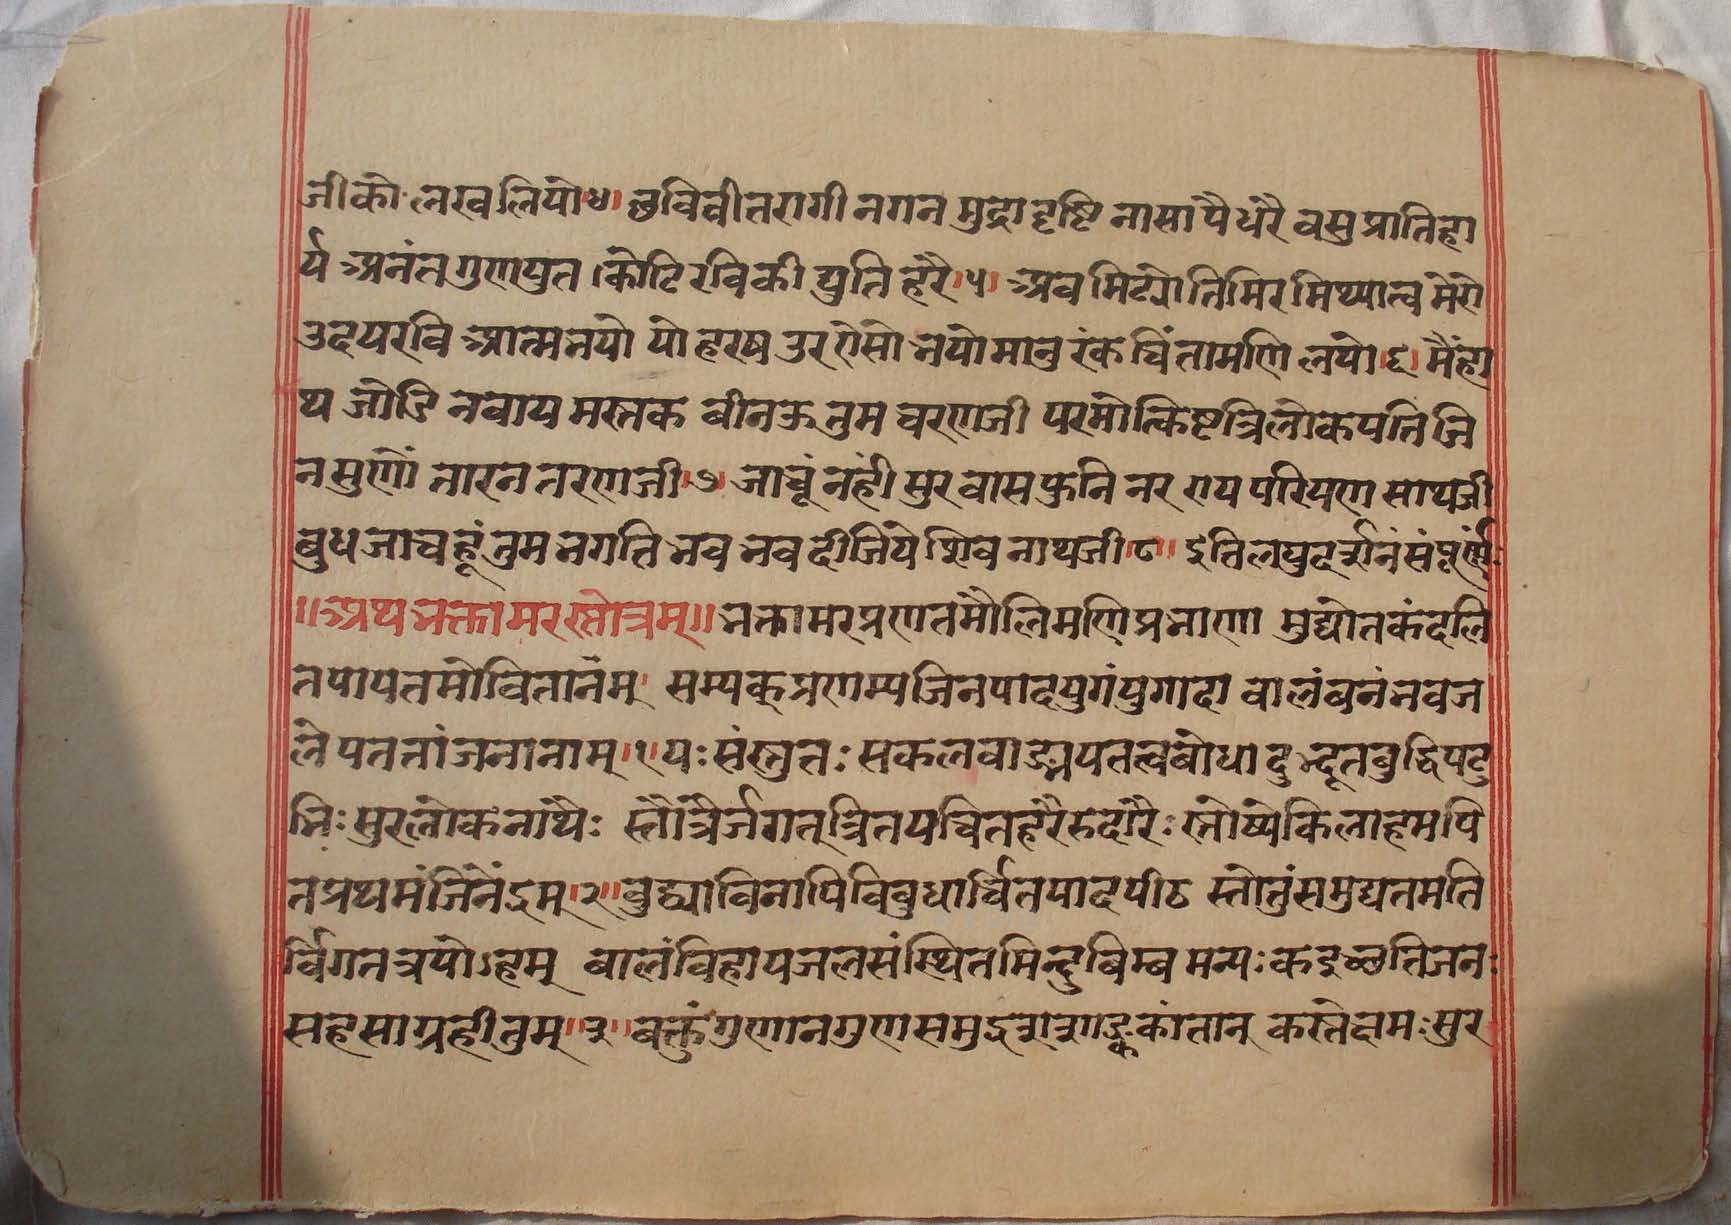 जीको लख लियो ४। छवि वीतरागी नगन मुद्रा दृष्टि नासा पै धरै वसु प्रातिहा
र्य अनंत गुणयुत कोटि रवि की द्युति हरै ।५। अव मिट्यो तिमिर मिथ्यात्व मेरो
उदय रवि आत्म भयो यो हरष उर ऐसो भयो मानु रंक चिंतामणि लयो ।६। मैं हा
थ जोडि नवाय मस्तक वीनऊ तुम चरणजी परमोत्किष्ट त्रिलोकपति जि
न सुणौं तारन तरणजी ।७। जाचूं नहीं सुर वास फुनि नर राय परियण साथजी
बुध जाच हूं तुम भगति भव भव दीजिये शिव नाथजी ।८। इति लघु दर्शनं संपूर्णं
।।अथ भक्तामर स्तोत्रम्।। भक्तामरप्रणतमौलिमणिप्रभाणा मुद्योतकंदलि
तपापतमोवितानंम्। सम्यक् प्रणम्यजिनपादयुगंयुगादा वालंवनंभवज
लेपततांजनानाम् ।१। यः संस्तुतः सकलवाङ्मयतत्त्वबोधा दुद्भूतबुद्धिपटु
भिः सुरलोकनाथैः स्तोत्रैर्जगत् त्रितयचितहरैरुदारैः स्तोष्येकिलाहमपि
तंप्रथमंजिनेंद्रम् ।२। बुद्ध्याविनापिविबुधार्चितपादपीठ स्तोतुंसमुद्यतमति
र्विगतत्रपोऽहम् बालंविहायजलसंस्थितमिन्दुबिम्ब मन्यः कइच्छतिजनः
सहसाग्रहीतुम् ।।३।। वक्तुंगुणानगुणसमुद्रशशाङ्ककांतान् कस्तेक्षमः सुर